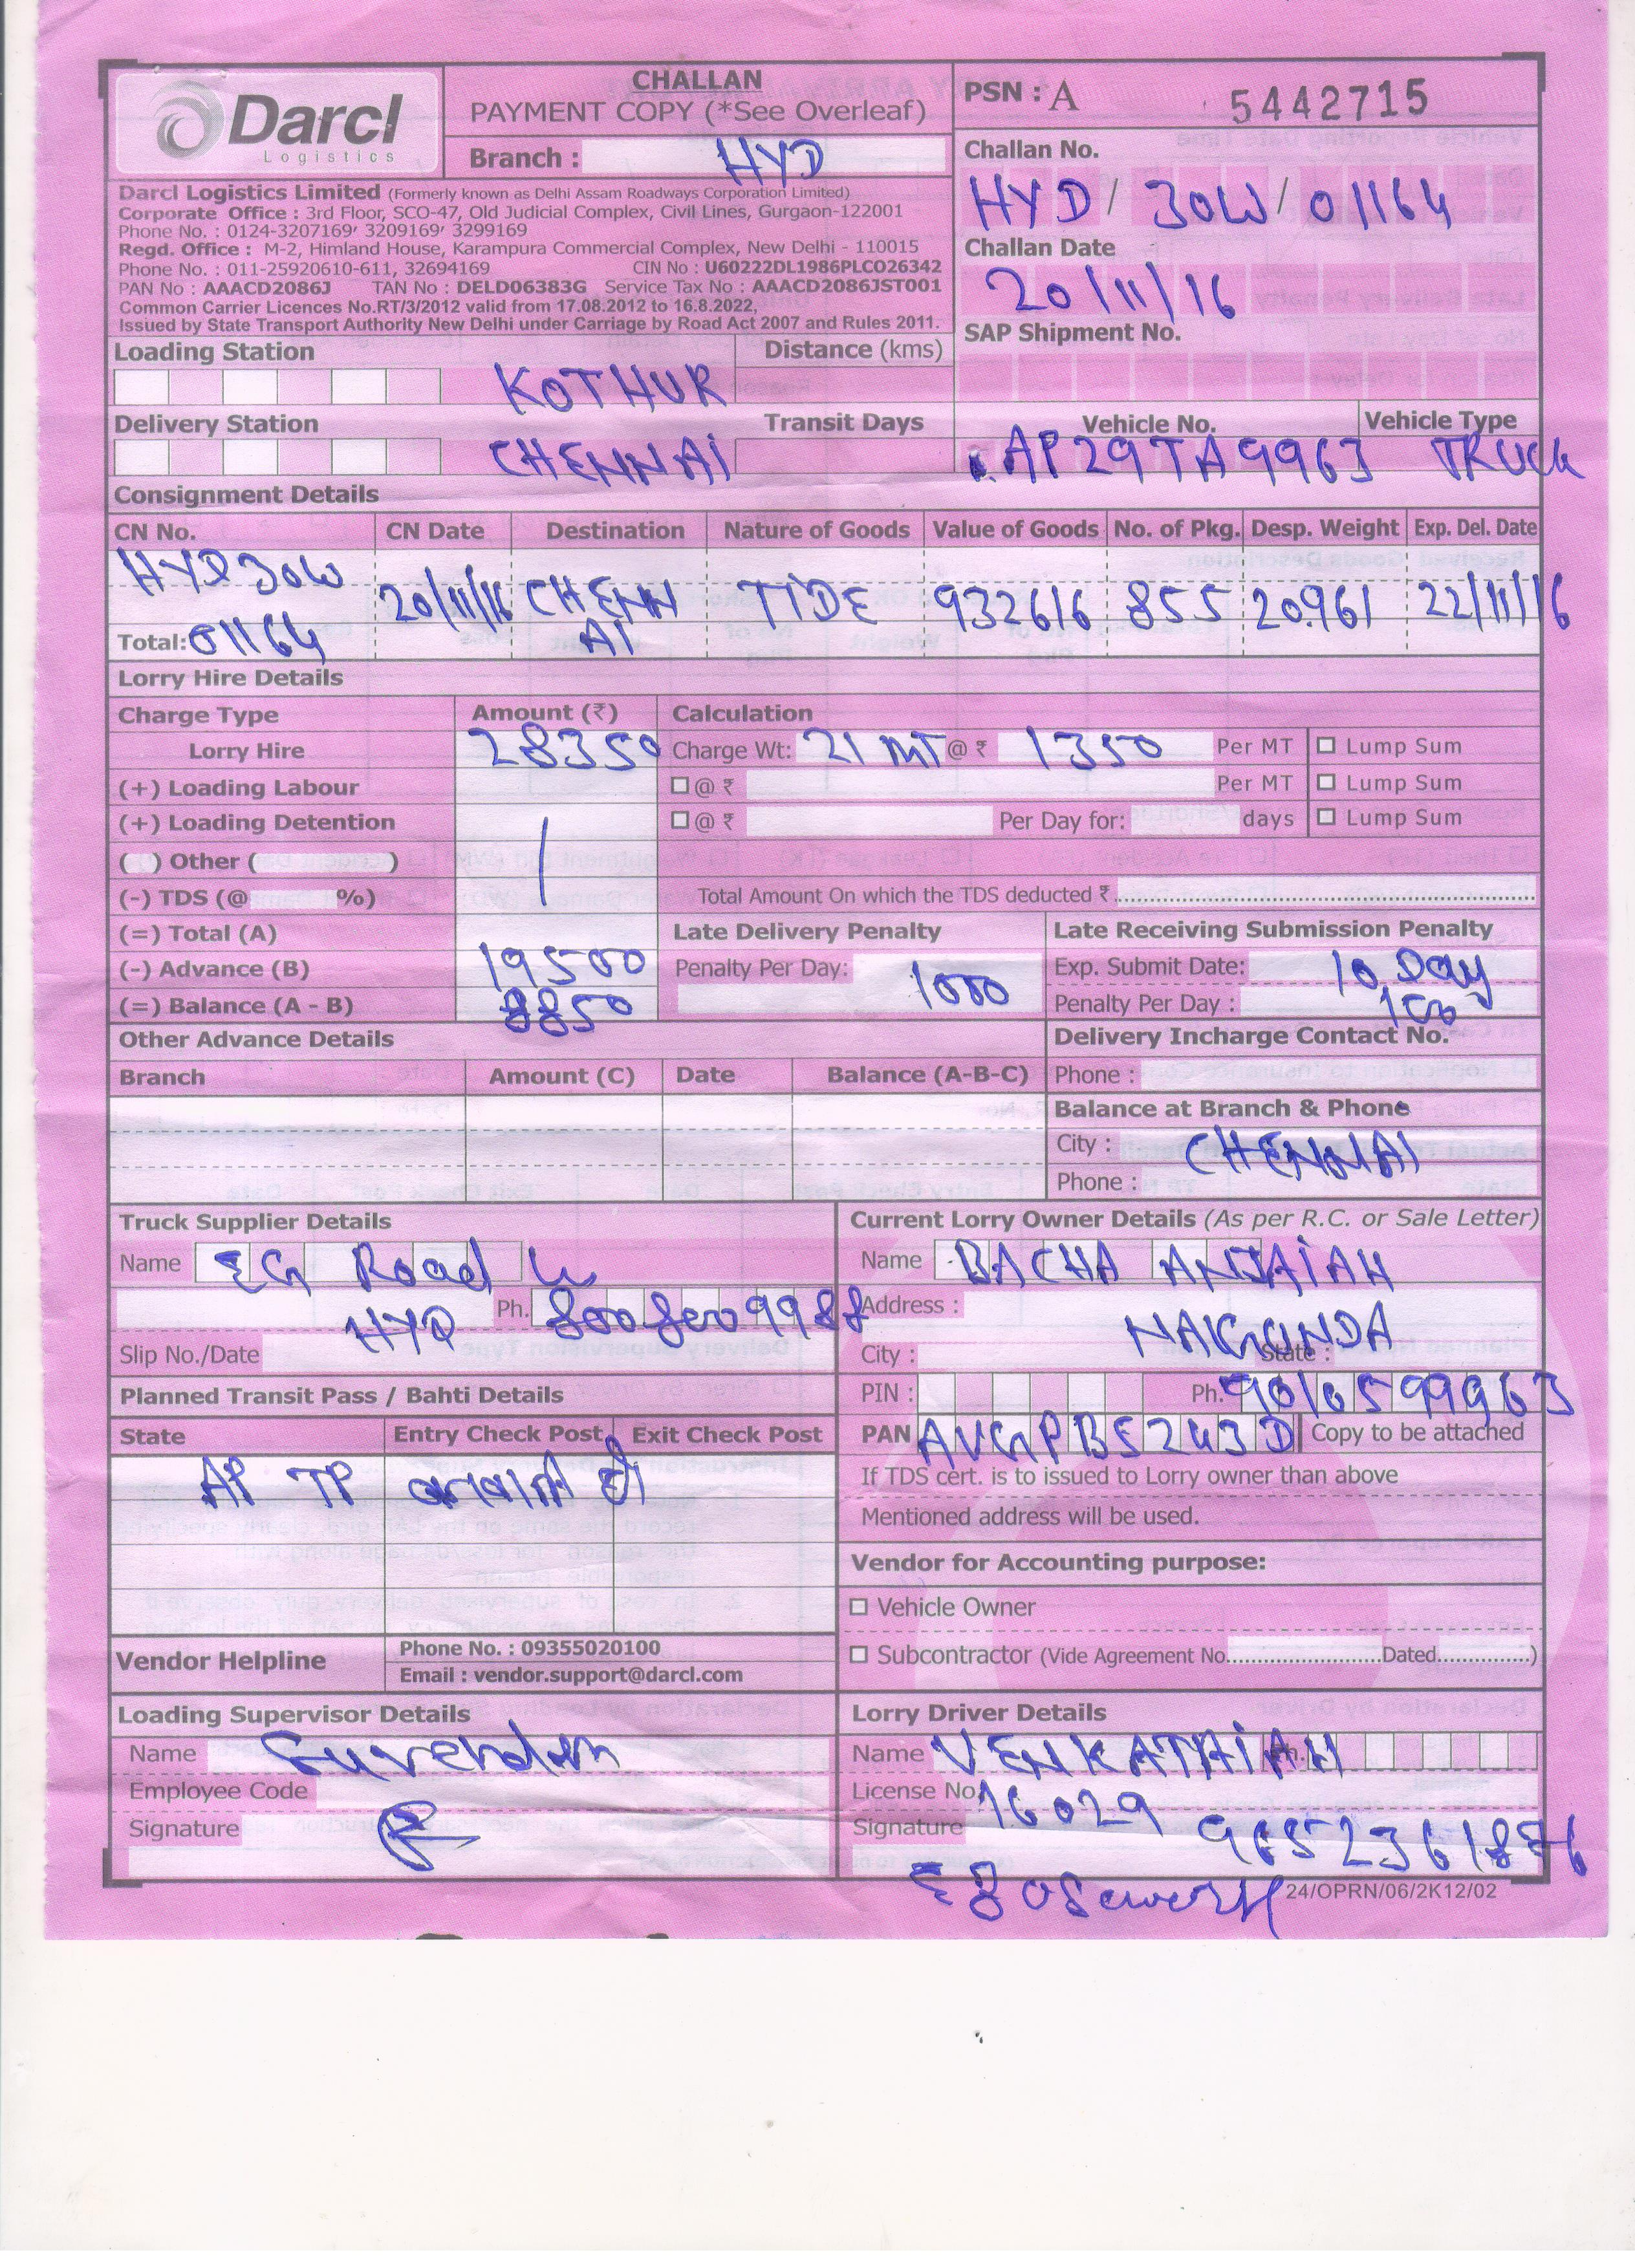 Darcl
Logistics
CHALLAN
PAYMENT COPY (*See Overleaf)
Branch : HYD
PSN : A 5442715
Challan No.
HYD / 30W / 01164
Challan Date
20/11/16
SAP Shipment No.
Darcl Logistics Limited (Formerly known as Delhi Assam Roadways Corporation Limited)
Corporate Office : 3rd Floor, SCO-47, Old Judicial Complex, Civil Lines, Gurgaon-122001
Phone No. : 0124-3207169, 3209169, 3299169
Regd. Office : M-2, Himland House, Karampura Commercial Complex, New Delhi - 110015
Phone No. : 011-25920610-611, 32694169 CIN No : U60222DL1986PLCO26342
PAN No : AAACD2086J TAN No : DELD06383G Service Tax No : AAACD2086JST001
Common Carrier Licences No.RT/3/2012 valid from 17.08.2012 to 16.8.2022,
Issued by State Transport Authority New Delhi under Carriage by Road Act 2007 and Rules 2011.
Loading Station KOTHUR Distance (kms)
Delivery Station CHENNAI Transit Days
Vehicle No. Vehicle Type
AP29TA9963 TRUCK
Consignment Details
CN No. CN Date Destination Nature of Goods Value of Goods No. of Pkg. Desp. Weight Exp. Del. Date
HYD 30W 20/11/16 CHENN TIDE 932616 855 20.961 22/11/16
Total: 01164 AI
Lorry Hire Details
Charge Type Amount (₹) Calculation
Lorry Hire 28350 Charge Wt: 21 MT @ ₹ 1350 Per MT Lump Sum
(+) Loading Labour @ ₹ Per MT Lump Sum
(+) Loading Detention @ ₹ Per Day for: days Lump Sum
( ) Other ( )
(-) TDS (@ %) Total Amount On which the TDS deducted ₹
(=) Total (A) Late Delivery Penalty Late Receiving Submission Penalty
(-) Advance (B) 19500 Penalty Per Day: 1000 Exp. Submit Date: 10 Day
(=) Balance (A - B) 8850 Penalty Per Day : 100
Other Advance Details Delivery Incharge Contact No.
Branch Amount (C) Date Balance (A-B-C) Phone :
Balance at Branch & Phone
City : CHENNAI
Phone :
Truck Supplier Details
Name EG Road L
HYD Ph. 8008009988
Slip No./Date
Current Lorry Owner Details (As per R.C. or Sale Letter)
Name BACHA ANJAIAH
Address :
NALGONDA
City : State :
PIN : Ph. 9016599963
PAN AVGPB5243D Copy to be attached
If TDS cert. is to issued to Lorry owner than above
Mentioned address will be used.
Planned Transit Pass / Bahti Details
State Entry Check Post Exit Check Post
AP TP
Vendor for Accounting purpose:
Vehicle Owner
Subcontractor (Vide Agreement No.......................Dated...............)
Vendor Helpline Phone No. : 09355020100
Email : vendor.support@darcl.com
Loading Supervisor Details
Name
Employee Code
Signature
Lorry Driver Details
Name VENKATAIAH Ph.
License No. 16029
Signature 9652361876
24/OPRN/06/2K12/02